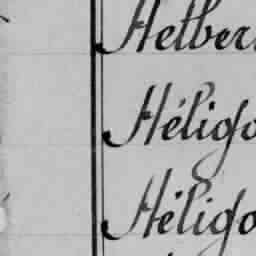 Helber
Héligo
Héligo